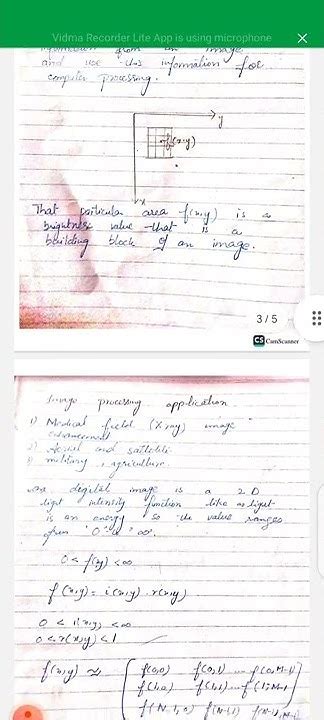 Vidma Recorder Lite App is using microphone
information from an image
and use this information for
computer processing.
y
f(x,y)
x
That particular area f(x,y) is a
brightness value that is a
building block of an image.
3 / 5
CS CamScanner
Image processing application
1) Medical field (X ray) image
enhancement
2) Aerial and satellite
3) military, agriculture.
digital image is a 2 D
light intensity function like as light
is an energy so the value ranges
from "0" to "∞".
0 < f(y) < ∞
f(x,y) = i(x,y) . r(x,y)
0 < i(x,y) < ∞
0 < r(x,y) < 1
f(x,y) ≈ f(0,0) f(0,1) ... f(0,M-1)
f(1,0) f(1,1) ... f(1,M-1)
f(N-1,0) f(N-1,1) f(N-1,M-1)